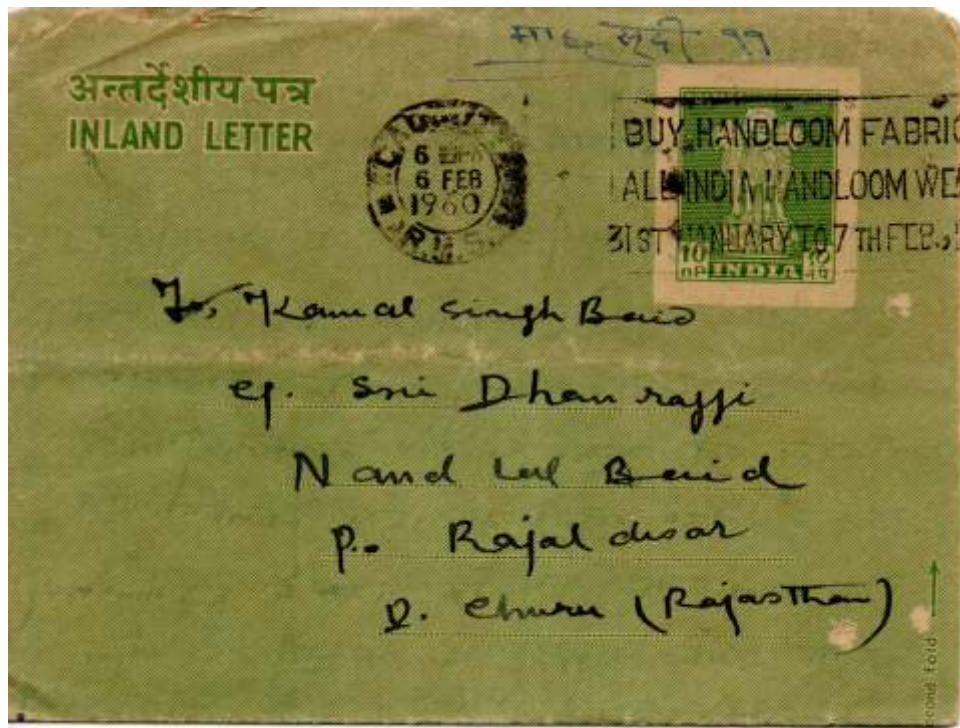 माह सूदी ११
अन्तर्देशीय पत्र
INLAND LETTER
6 FEB
1960
R.M.S.
BUY HANDLOOM FABRIC
ALL INDIA HANDLOOM WE
31ST JANUARY TO 7TH FEB.,
10 10
nP INDIA नप
To, Kamal Singh Baid
c/. Sri Dhanrajji
Nand Lal Baid
P.o Rajaldesar
D. Churu (Rajasthan)
ond fold